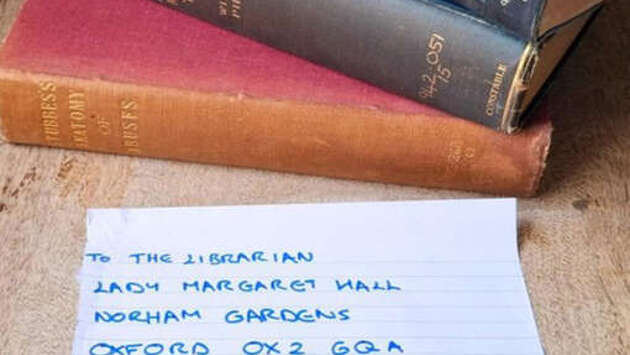 942.051
15
CONSTABLE
TUBBES'S
ANATOMY
OF
ABUSES
TO THE LIBRARIAN
LADY MARGARET HALL
NORHAM GARDENS
OXFORD OX2 6QA